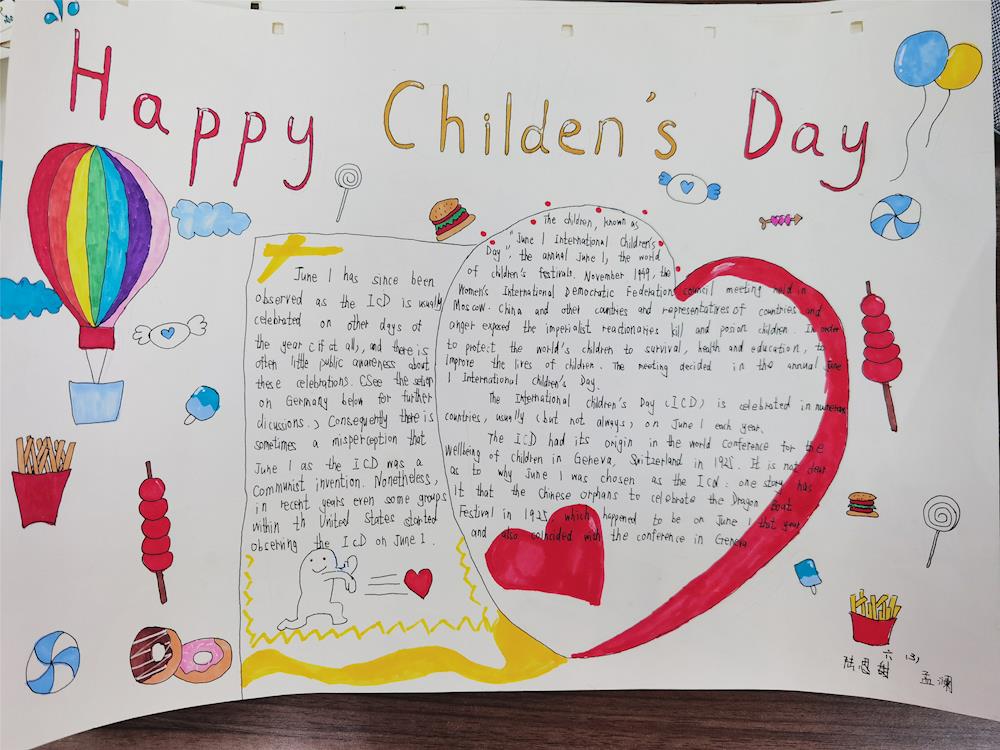 Happy Childen's Day
June 1 has since been
observed as the ICD is usually
celebrated on other days of
the year (if at all), and there is
often little public awareness about
these celebrations. CSee the setion
on Germany below for further
dicussions.) Consequently there is
sometimes a misperception that
June 1 as the ICD was a
Communist invention. Nonetheless,
in recent years even some groups
within th United States started
observing the ICD on June 1.
The children, known as
"June 1 International Children's
Day", the annual June 1, the world
of children's festivals. November 1949, the
Women's International Democratic Federations council meeting held in
Moscow. China and other countries and representatives of countries and
anger exposed the imperialist reactionaries kill and posion children. In order
to protect the world's children to survival, health and education, to
Improve the lives of children. The meeting decided in the annual June
1 International Children's Day.
The International children's Day (ICD) is celebrated in numerous
countries, usually (but not always) on June 1 each year.
The ICD had its origin in the world Conference for the
Wellbeing of children in Geneva, Switzerland in 1925. It is not clear
as to why June 1 was chosen as the ICD: one story has
It that the Chinese orphans to celebrate the Dragon Boat
Festival in 1925, which happened to be on June 1 that year,
and also coincided with the conference in Geneva
六 (3)
陆思甜 孟澜